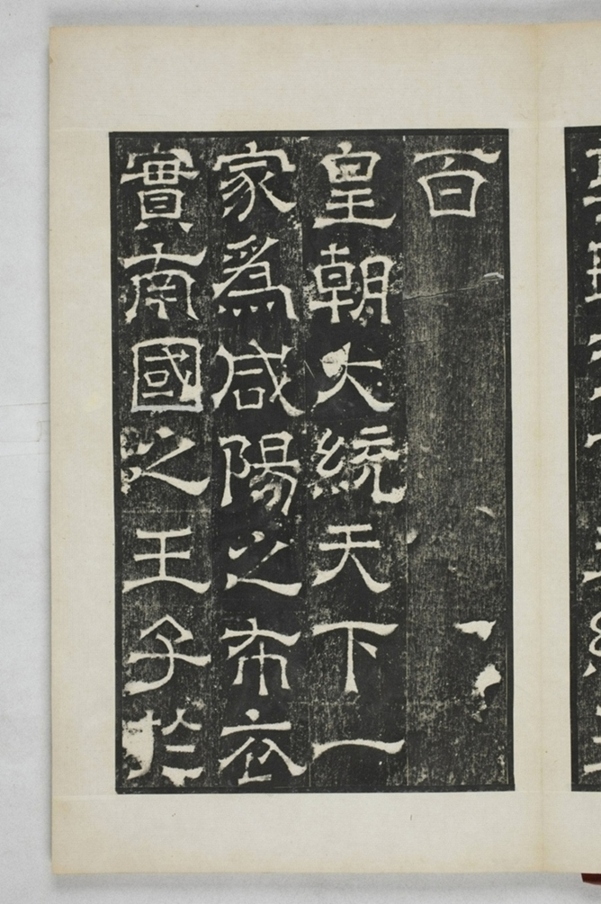 百
皇朝大統天下一
家爲咸陽之布衣
實南國之王子於